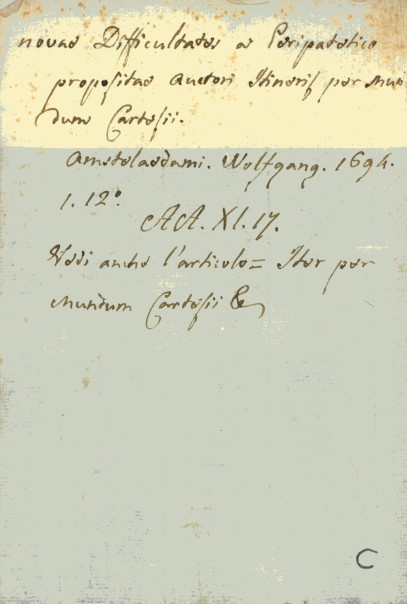 novae Difficultates a Peripatetico
propositae Autori Itineris per Mun
dum Cartesii.
Amstelaedami. Wolfgang. 1694.
1. 12.°
AA. XI. 17.
Vedi anche l'articolo = Iter per
Mundum Cartesii &c
C